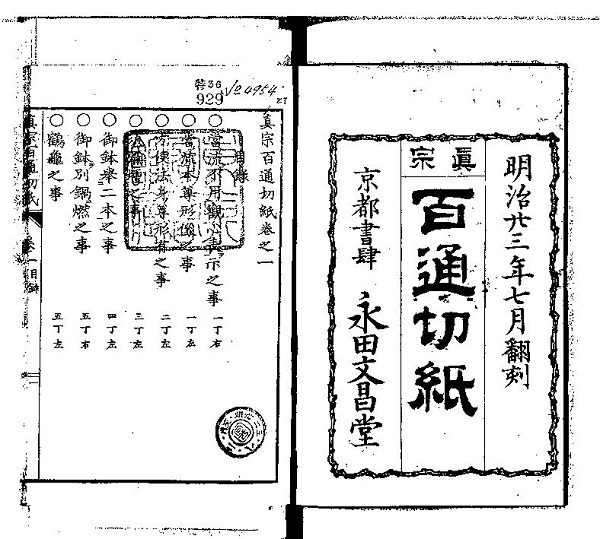 明治廿三年七月翻刻
眞宗
百通切紙
京都書肆 永田文昌堂
特36
929
眞宗百通切紙卷之一
目錄
○當流不用之事 一丁右
○當流本尊形像之事 一丁左
○方便法身尊形者之事 二丁左
○之事 三丁左
○御鉢舉二本之事 四丁左
○御鉢別鍋燃之事 五丁右
○鶴龜之事 五丁左
眞宗百通切紙 卷一目錄